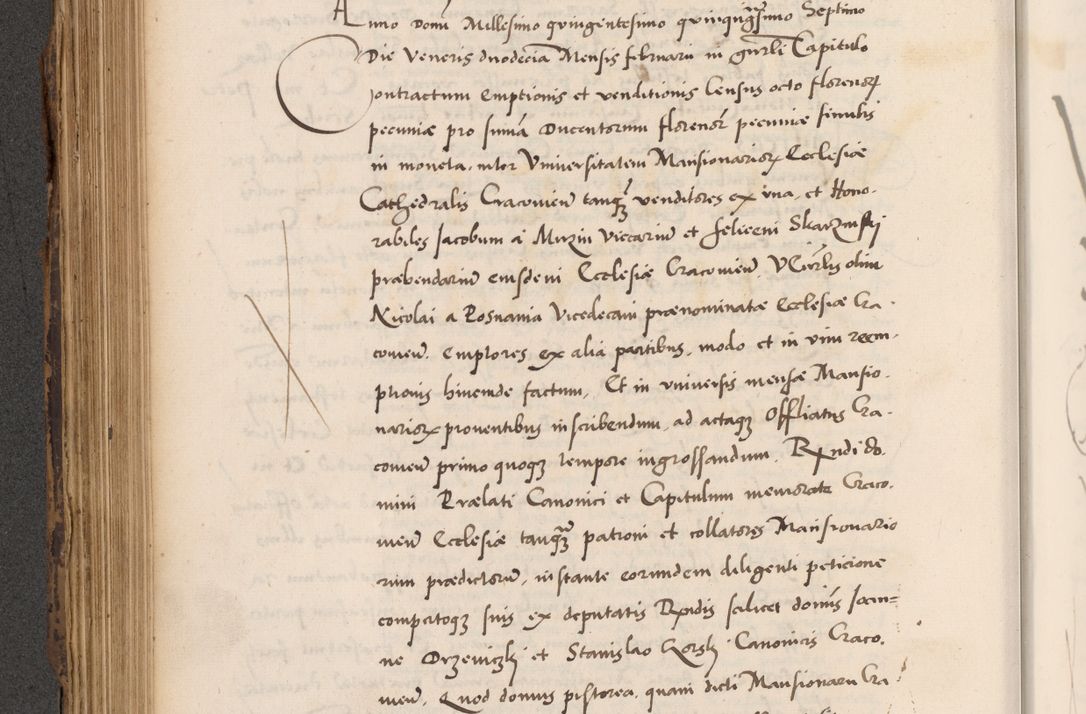 Anno Domi Millesimo quingentesimo quinquagesimo Septimo
Die Veneris duodecia Mensis februarii in gnrli Capitulo
Contractum Emptionis et venditionis Census octo florenoꝝ
pecuniæ pro suma Ducentorum florenoꝝ pecuniæ similis
in moneta, inter Vniversitatem Mansionarioꝝ Ecclesiæ
Cathedralis Cracovien tanqꝫ venditores ex una, et Hono-
rabiles Jacobum a Muzin Viccarium et felicem Skarzinskj
præbendarium eiusdem Ecclesiæ Cracovien, olim
Nicolai a Posnania Vicedecani prænominatæ Ecclesiæ Cra-
covien. Emptores ex alia partibus, modo et in vim reem-
ptionis hincinde factum, Et in universis mensæ Mansio-
narioꝝ proventibus inscribendum, ad actaqꝫ Officiatus Cra-
covien primo quoqꝫ tempore ingrossandum. Rndi do-
mini Prælati Canonici et Capitulum memorate Craco-
vien Ecclesiæ tanqꝫ patroni et collatores Mansionario
rum prædictorum, instante eorundem diligenti peticione
compertoqꝫ suis ex deputatis Rndis scilicet domis Joan=
ne Drzeviczkj et Stanislao Gorskj Canonicis Craco-
vien, Quod domus pistorea, quam dicti Mansionarii Cra-